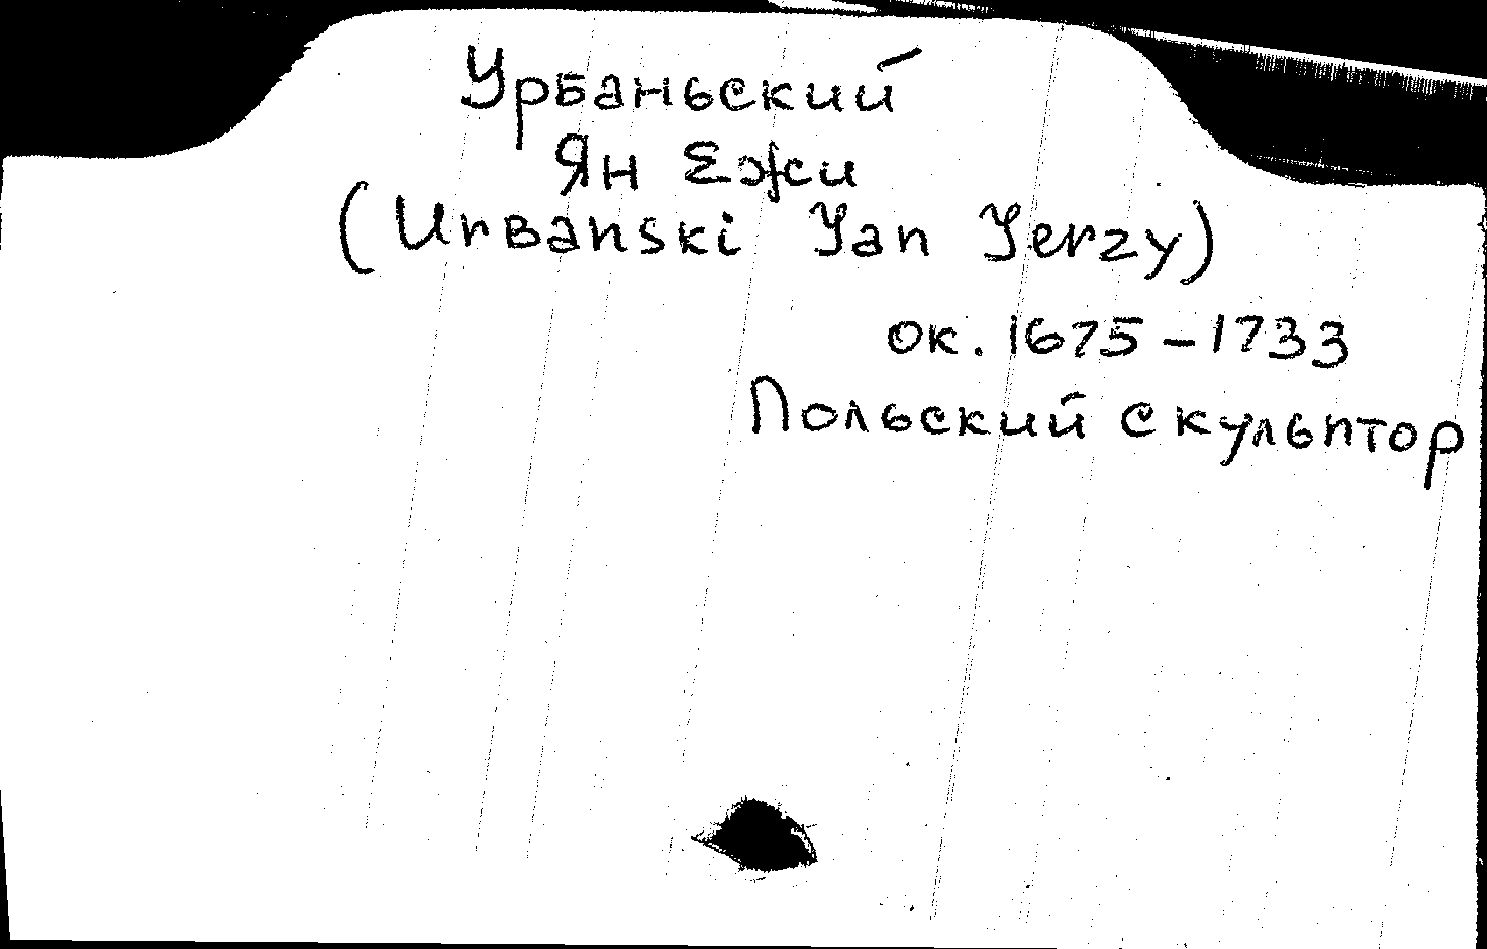 Урбаньский
Ян Ежи
(Urbanski Jan Jerzy)
ок. 1675-1733
Польский скульптор